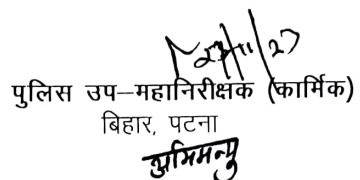 27/11/23
पुलिस उप–महानिरीक्षक (कार्मिक)
बिहार, पटना
अभिमन्यु